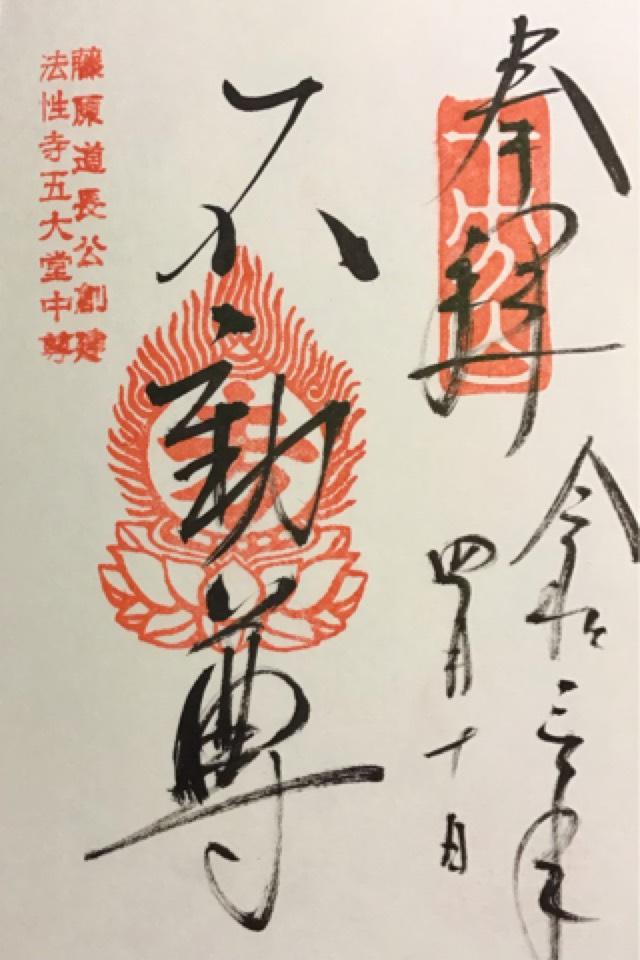 奉拝
令和三年
四月十日
不動尊
藤原道長公創建
法性寺五大堂中尊